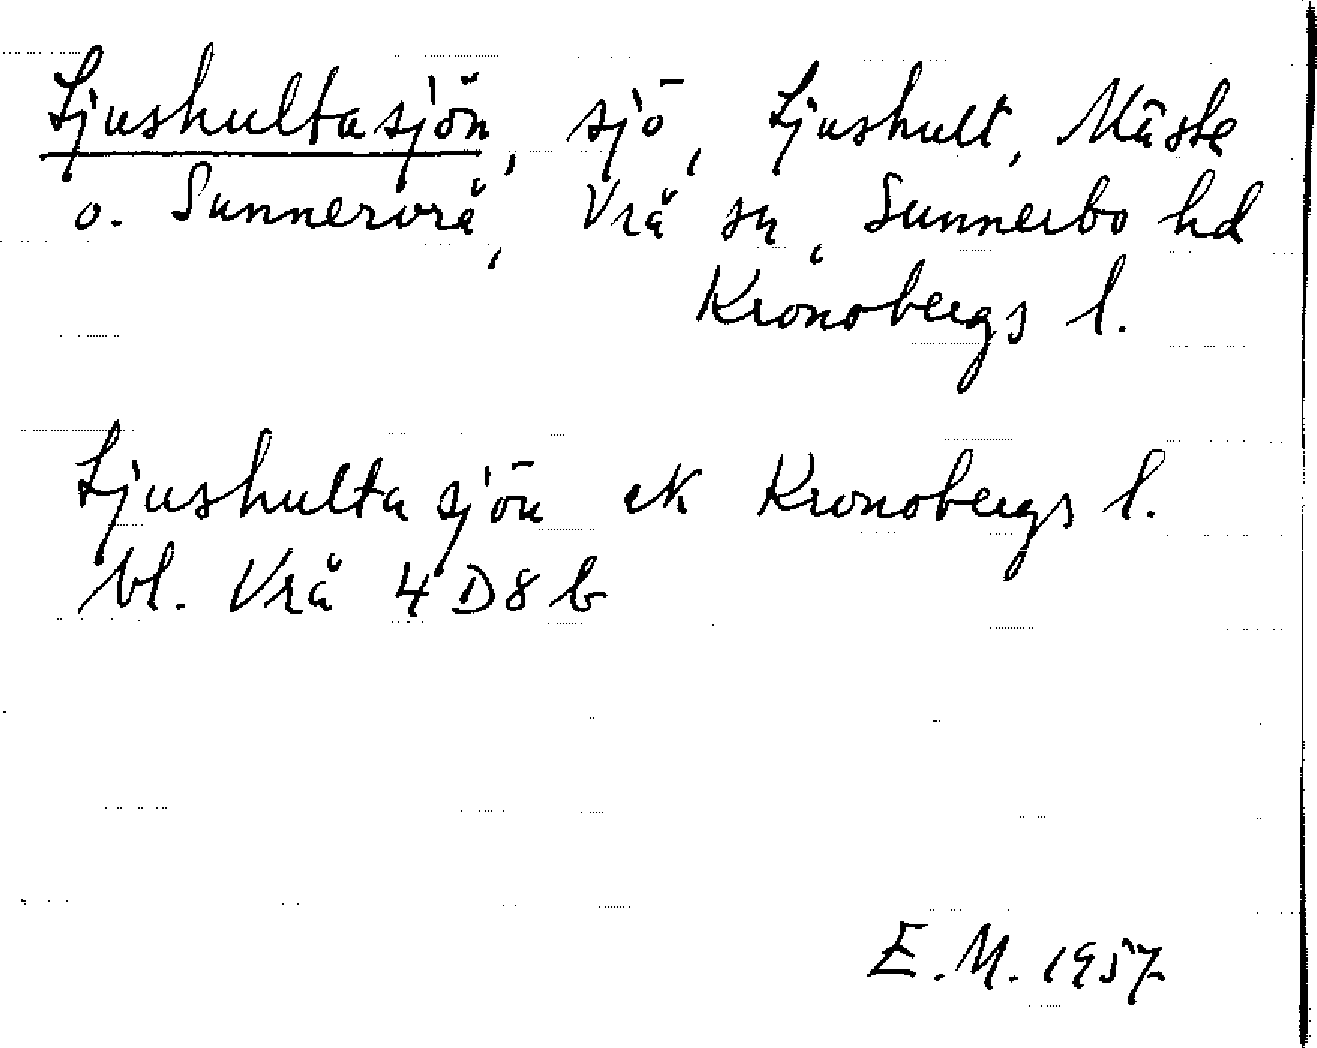 Ljushultasjön, sjö, Ljushult, Måste
o. Sunnervrå, Vrå sn, Sunnerbo hd
Kronobergs l.
Ljushultasjön ek Kronobergs l.
bl. Vrå 4 D 8 b
E.M. 1957